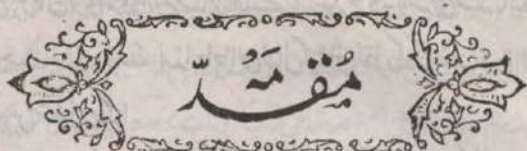 مُقدّمَہ